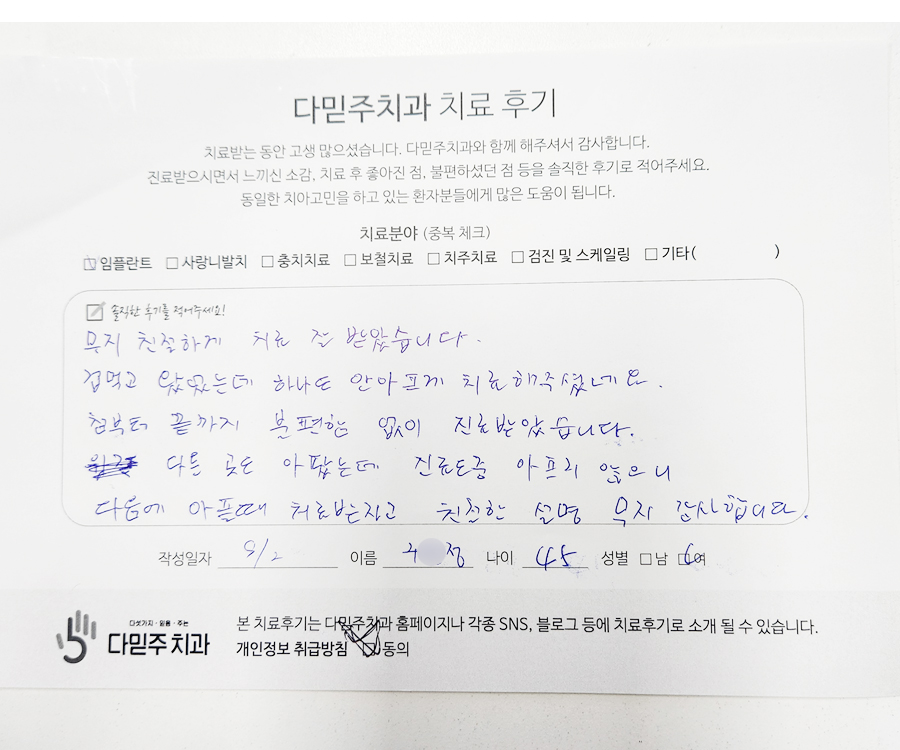 다믿주치과 치료 후기
치료받는 동안 고생 많으셨습니다. 다믿주치과와 함께 해주셔서 감사합니다.
진료받으시면서 느끼신 소감, 치료 후 좋아진 점, 불편하셨던 점 등을 솔직한 후기로 적어주세요.
동일한 치아고민을 하고 있는 환자분들에게 많은 도움이 됩니다.
치료분야 (중복 체크)
☑임플란트 □사랑니발치 □충치치료 □보철치료 □치주치료 □검진 및 스케일링 □기타( )
솔직한 후기를 적어주세요!
무지 친절하게 치료 잘 받았습니다.
겁먹고 왔었는데 하나도 안아프게 치료해주셨네요.
첨부터 끝까지 불편함 없이 진료받았습니다.
다른 곳도 아팠는데 진료도중 아프지 않으니
다음에 아플때 치료받는 친절한 설명 무지 감사합니다.
작성일자 9/2 이름 정 나이 45 성별 □남 ☑여
다섯가지·믿음·주는
다믿주치과
본 치료후기는 다믿주치과 홈페이지나 각종 SNS, 블로그 등에 치료후기로 소개 될 수 있습니다.
개인정보 취급방침 ☑동의